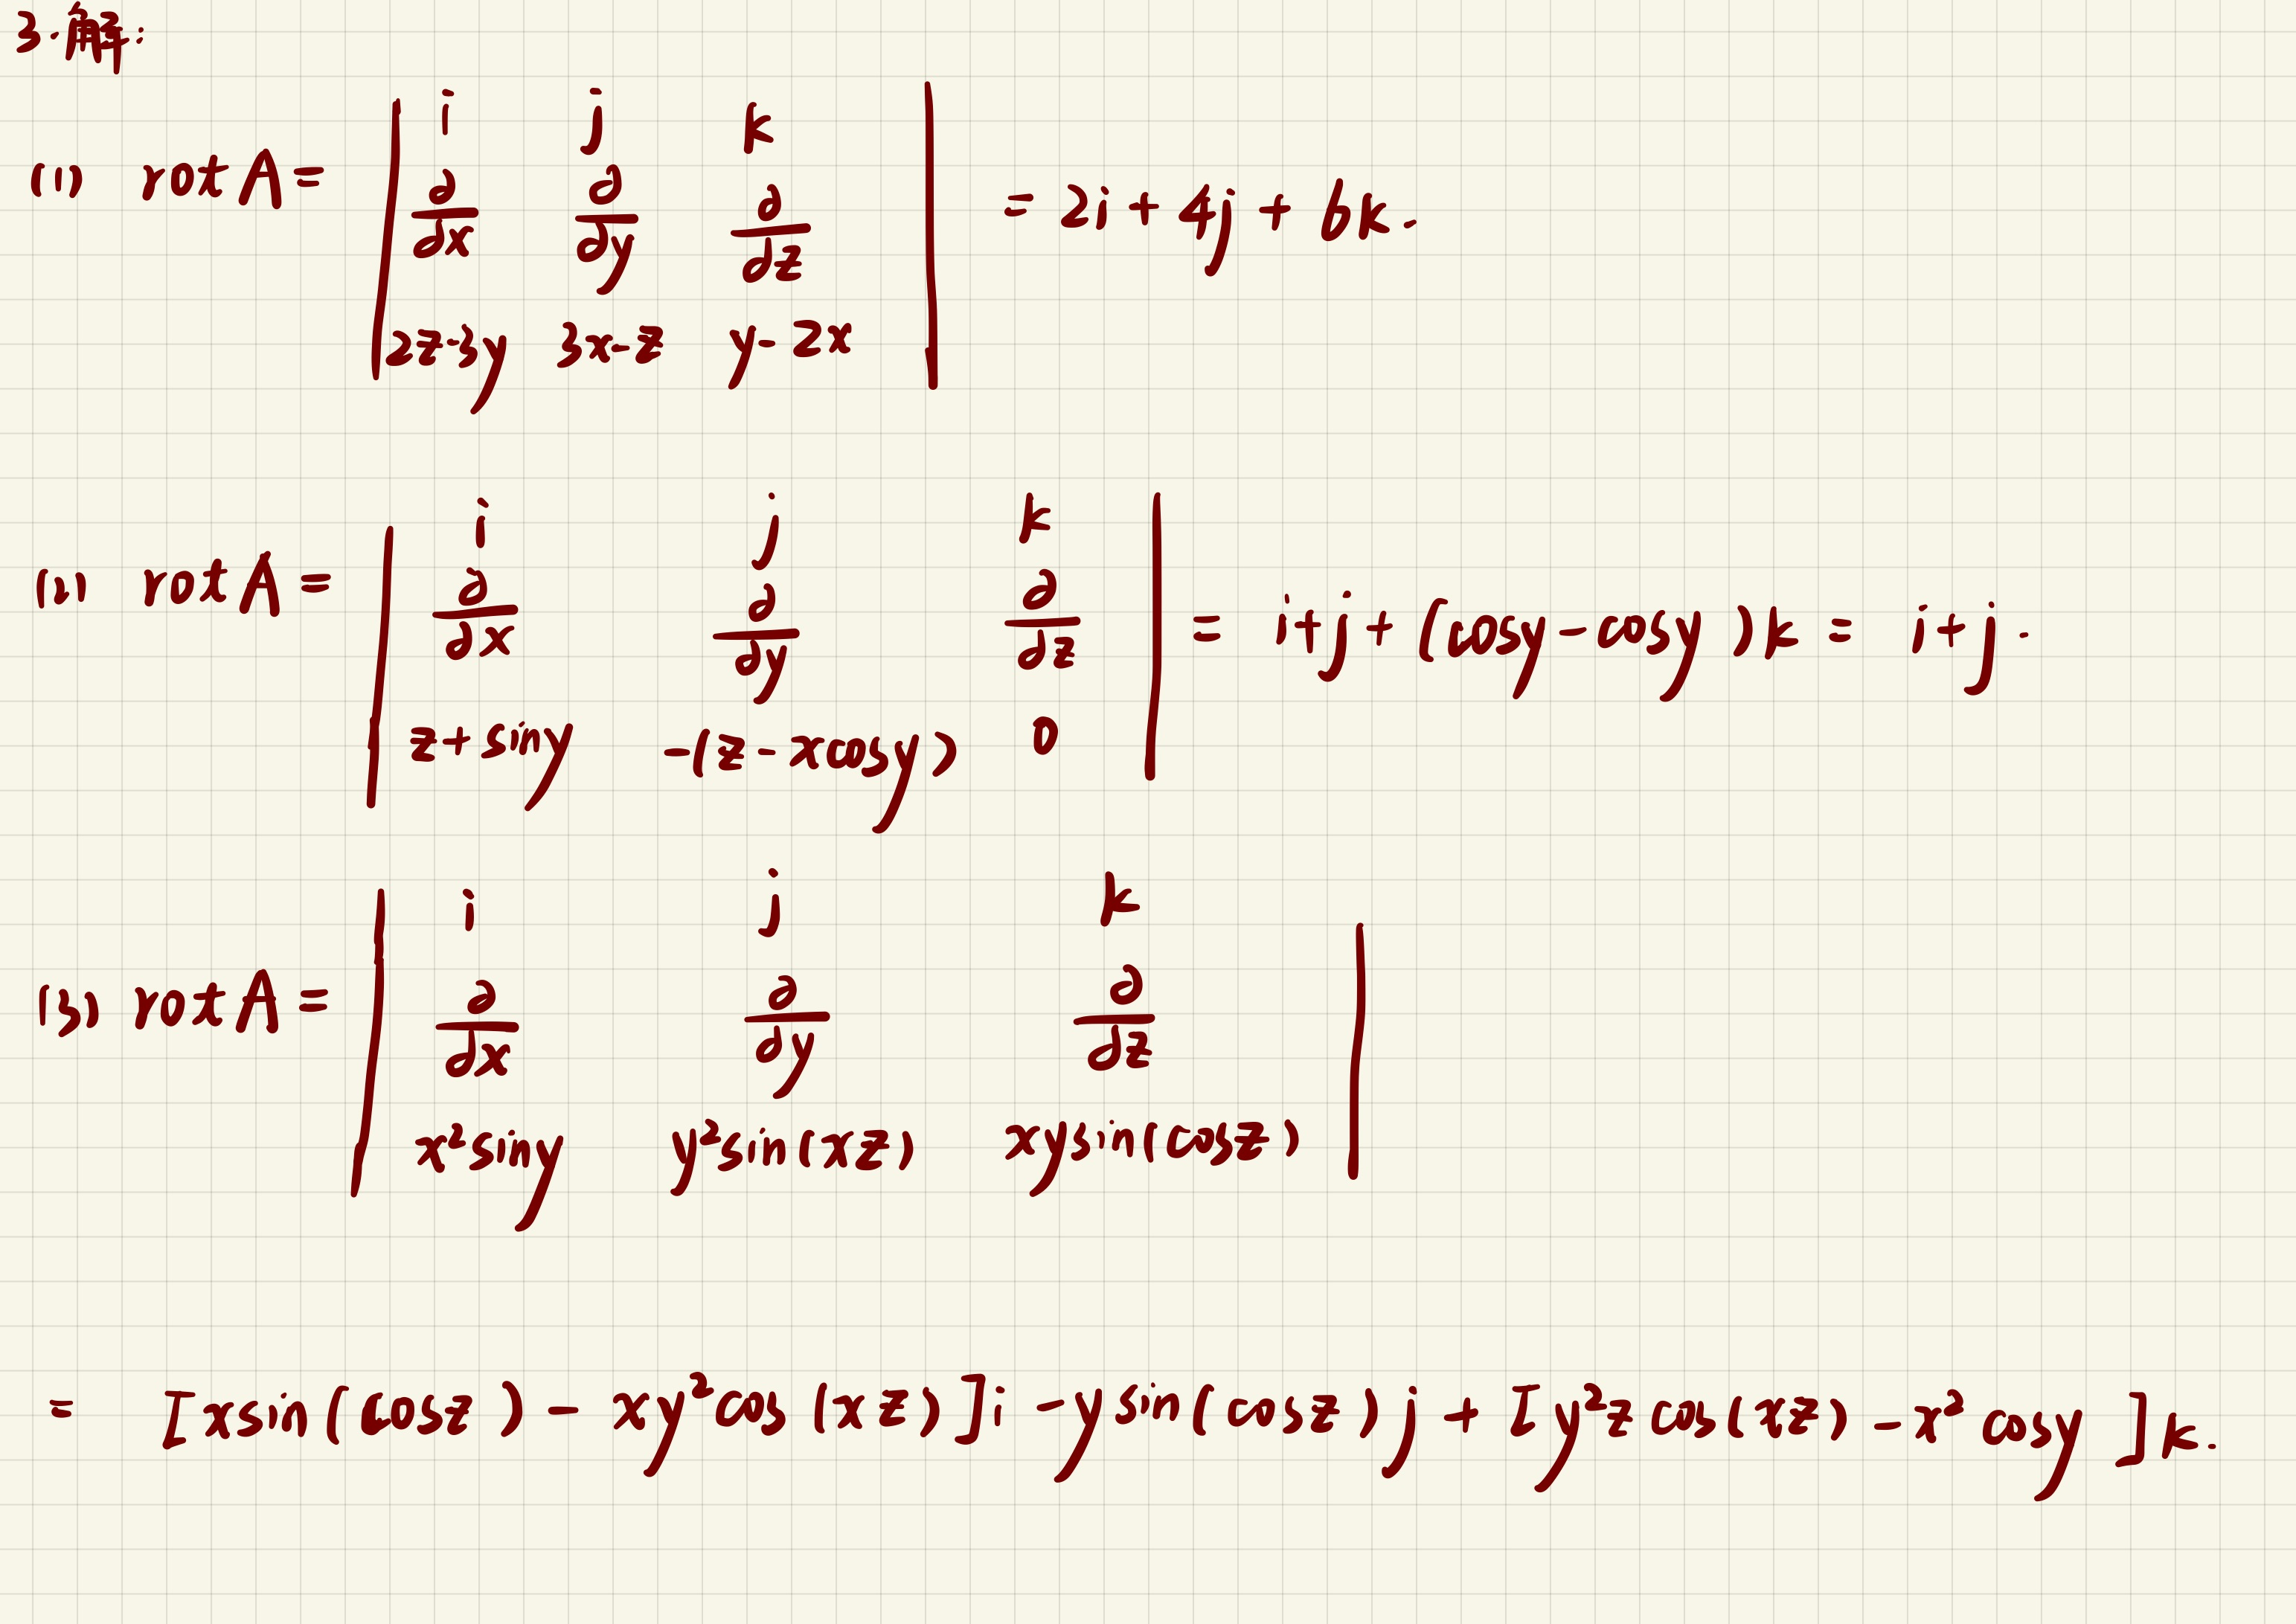 3.解:
(1) rot A = | i j k ; ∂/∂x ∂/∂y ∂/∂z ; 2z-3y 3x-z y-2x | = 2i + 4j + 6k.
(2) rot A = | i j k ; ∂/∂x ∂/∂y ∂/∂z ; z+siny -(z-xcosy) 0 | = i+j+(cosy-cosy)k = i+j.
(3) rot A = | i j k ; ∂/∂x ∂/∂y ∂/∂z ; x²siny y²sin(xz) xysin(cosz) |
= [xsin(cosz) - xy²cos(xz)]i - ysin(cosz)j + [y²zcos(xz) - x²cosy]k.